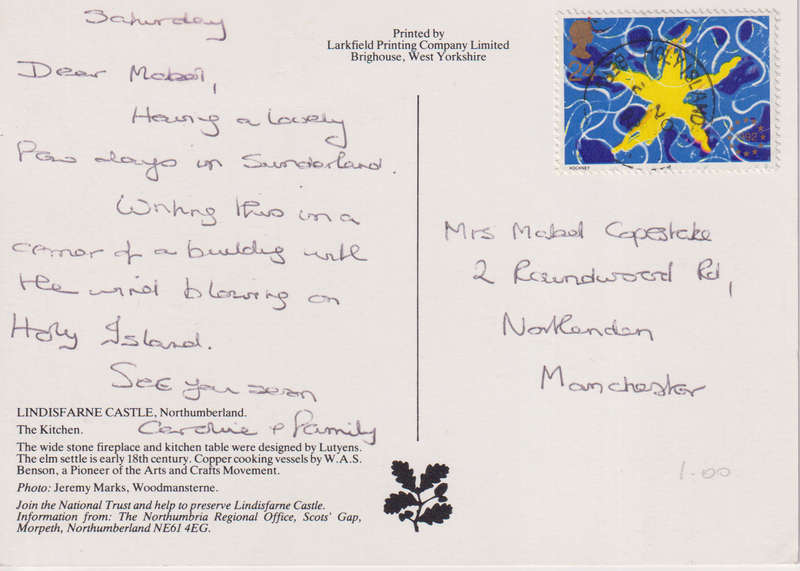 Saturday
Dear Mabel,
Having a lovely
few days in Sunderland.
Writing this in a
corner of a building with
the wind blowing on
Holy Island.
See you soon
Caroline & Family
LINDISFARNE CASTLE, Northumberland.
The Kitchen.
The wide stone fireplace and kitchen table were designed by Lutyens.
The elm settle is early 18th century. Copper cooking vessels by W.A.S.
Benson, a Pioneer of the Arts and Crafts Movement.
Photo: Jeremy Marks, Woodmansterne.
Join the National Trust and help to preserve Lindisfarne Castle.
Information from: The Northumbria Regional Office, Scots' Gap,
Morpeth, Northumberland NE61 4EG.
Printed by
Larkfield Printing Company Limited
Brighouse, West Yorkshire
24
HOLY ISLAND
HOCKNEY
Mrs Mabel Copestake
2 Roundwood Rd,
Northenden
Manchester
1.00